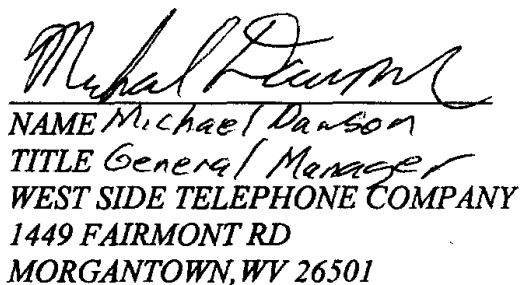 Michael Dawson
NAME Michael Dawson
TITLE General Manager
WEST SIDE TELEPHONE COMPANY
1449 FAIRMONT RD
MORGANTOWN, WV 26501